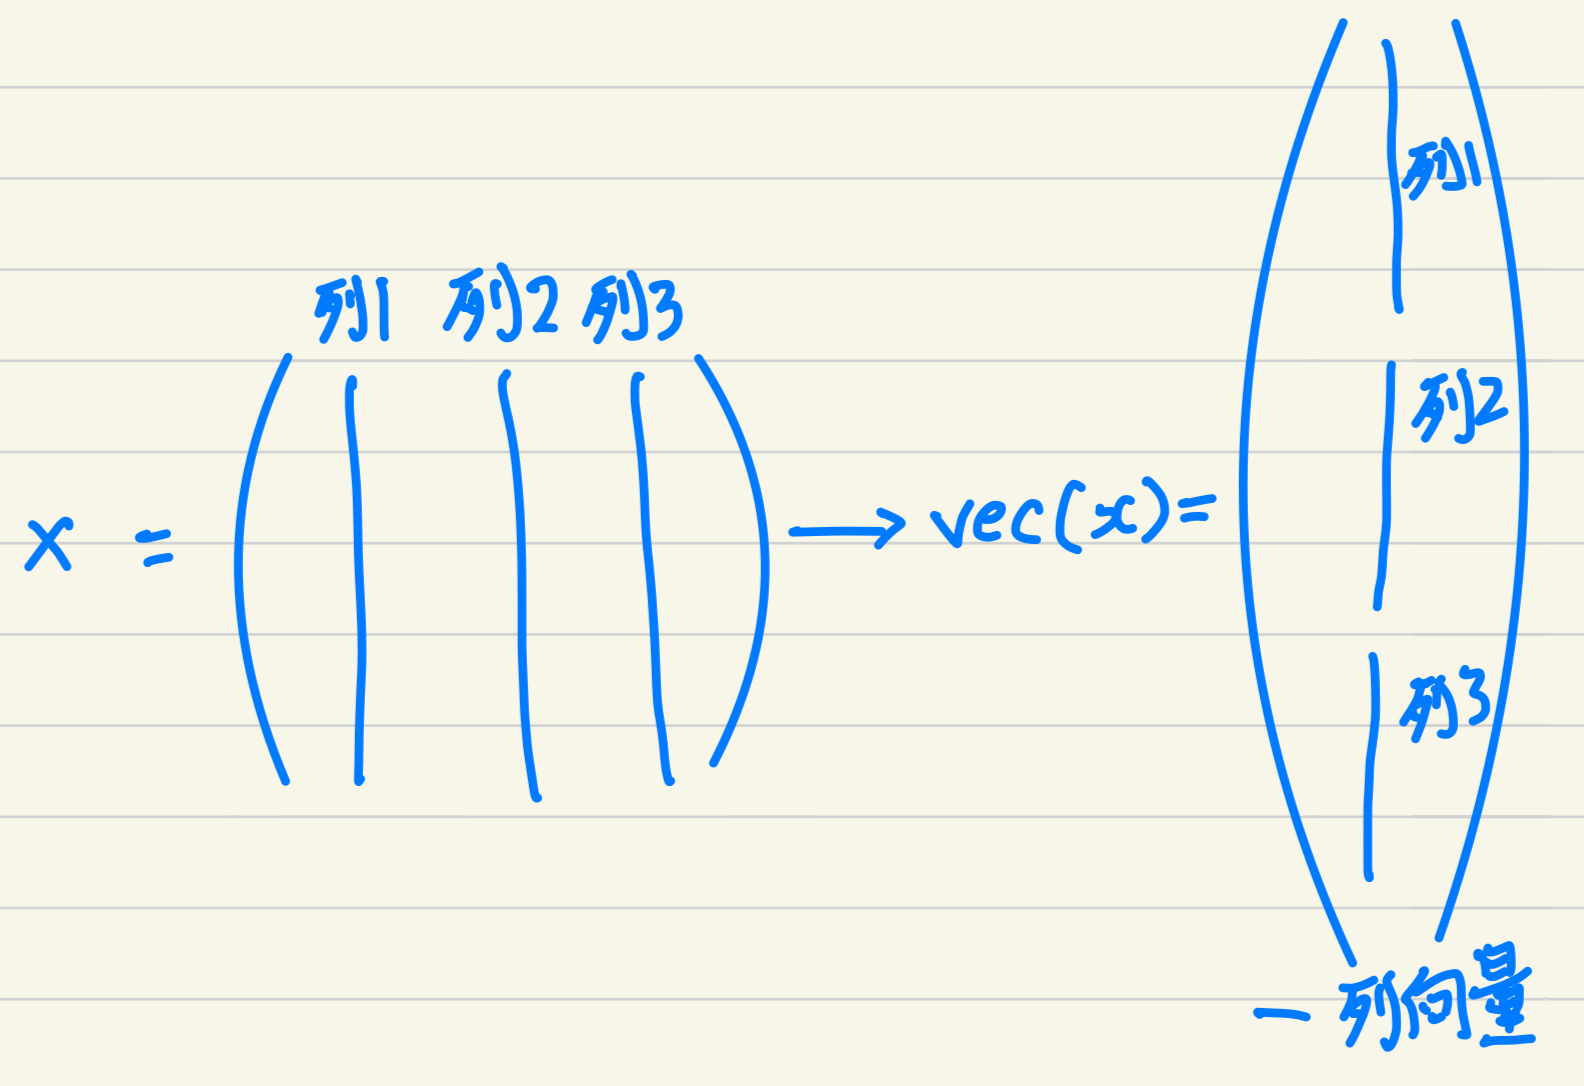 列1 列2 列3
x = ( ) → vec(x) = ( )
列1
列2
列3
一列向量